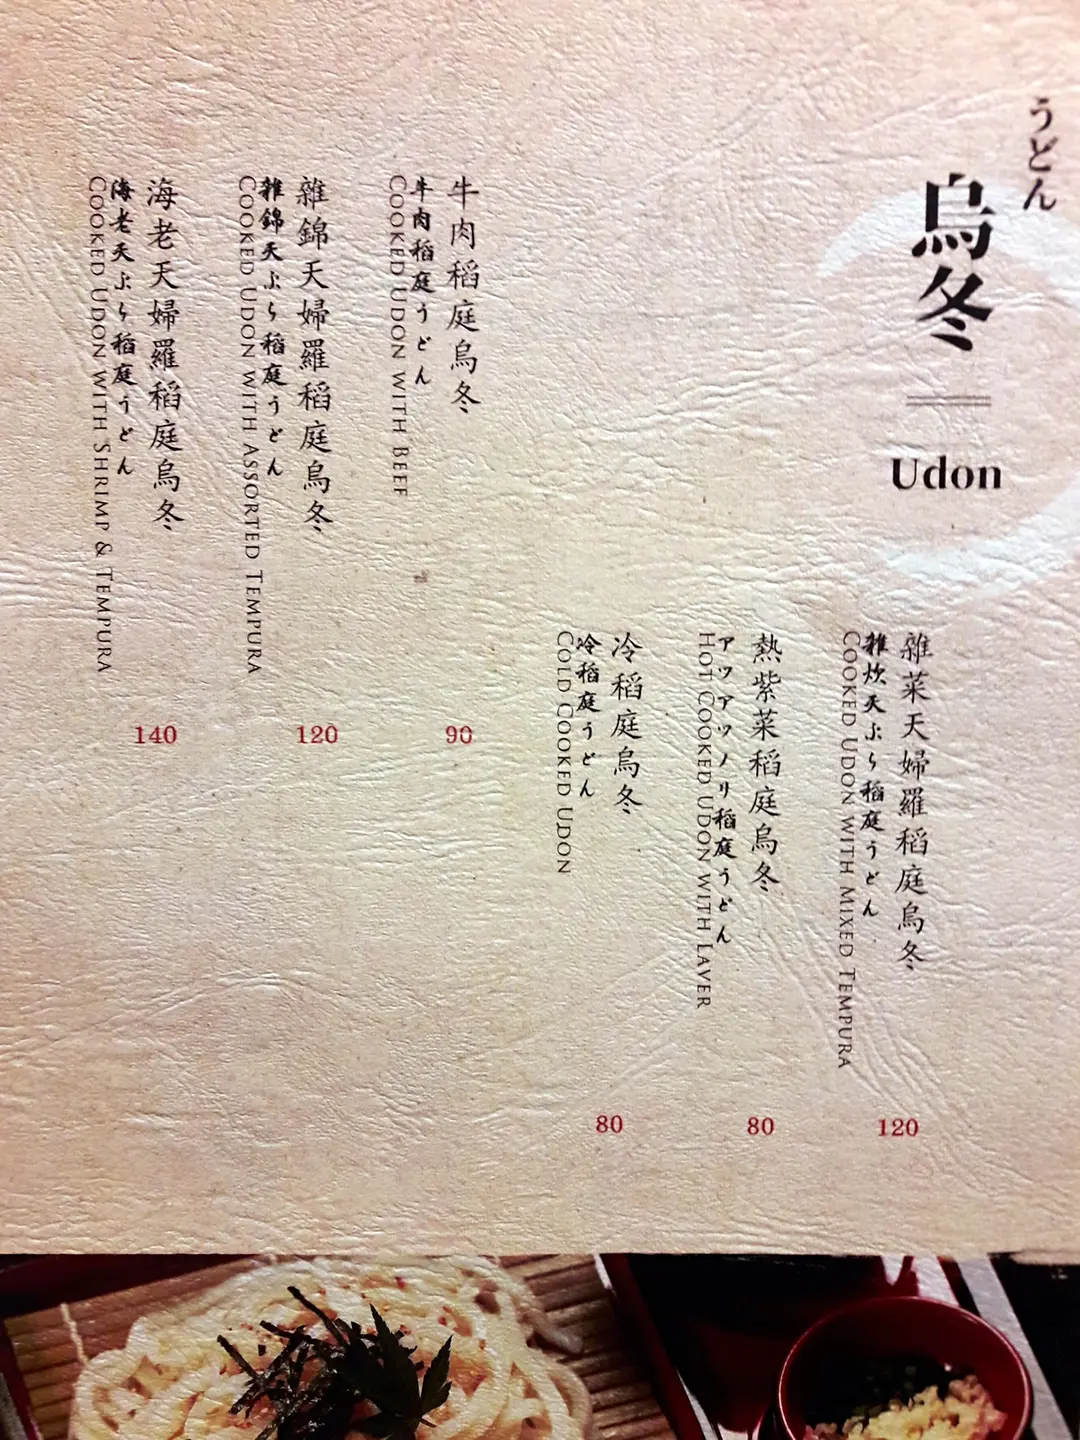 うどん
烏冬
Udon
雜菜天婦羅稻庭烏冬
雑炊天ぷら稲庭うどん
COOKED UDON WITH MIXED TEMPURA
120
熱紫菜稻庭烏冬
アツアツノリ稲庭うどん
HOT COOKED UDON WITH LAVER
80
冷稻庭烏冬
冷稲庭うどん
COLD COOKED UDON
80
牛肉稻庭烏冬
牛肉稲庭うどん
COOKED UDON WITH BEEF
90
雜錦天婦羅稻庭烏冬
雑錦天ぷら稲庭うどん
COOKED UDON WITH ASSORTED TEMPURA
120
海老天婦羅稻庭烏冬
海老天ぷら稲庭うどん
COOKED UDON WITH SHRIMP & TEMPURA
140